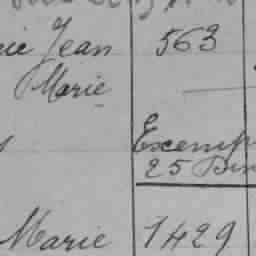 Jean 563
Marie
Exemp
25 Bin
Marie 1429